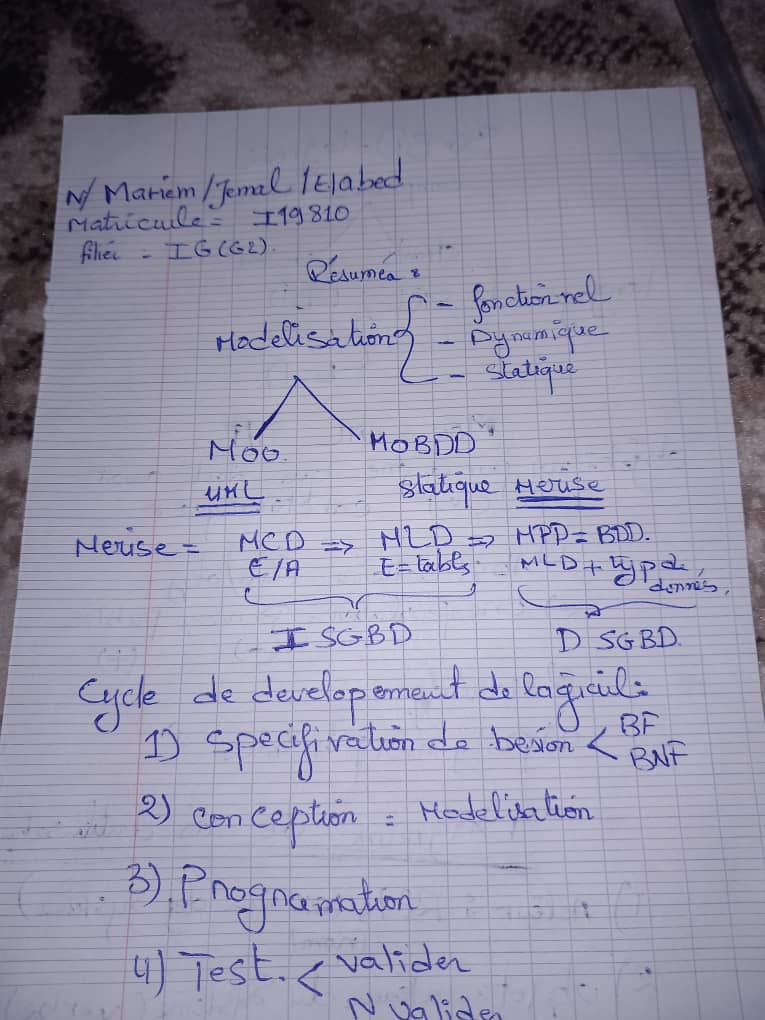 N/ Mariem/Jemal/Elabed
Matricule = I19810
filiei = IG(G2).
Résumea :
Modelisation { - fonctionnel
- Dynamique
- Statique
Moo MOBDD
UML Statique Merise
Merise = MCD => MLD => MPD = BDD.
E/A E=tables. MLD + typ de
donnés,
I SGBD D SGBD.
Cycle de developement de lagiciel:
1) Specifivation de besion < BF
BNF
2) conception = Modelisation
3) Programation
4) Test. < valider
N valider